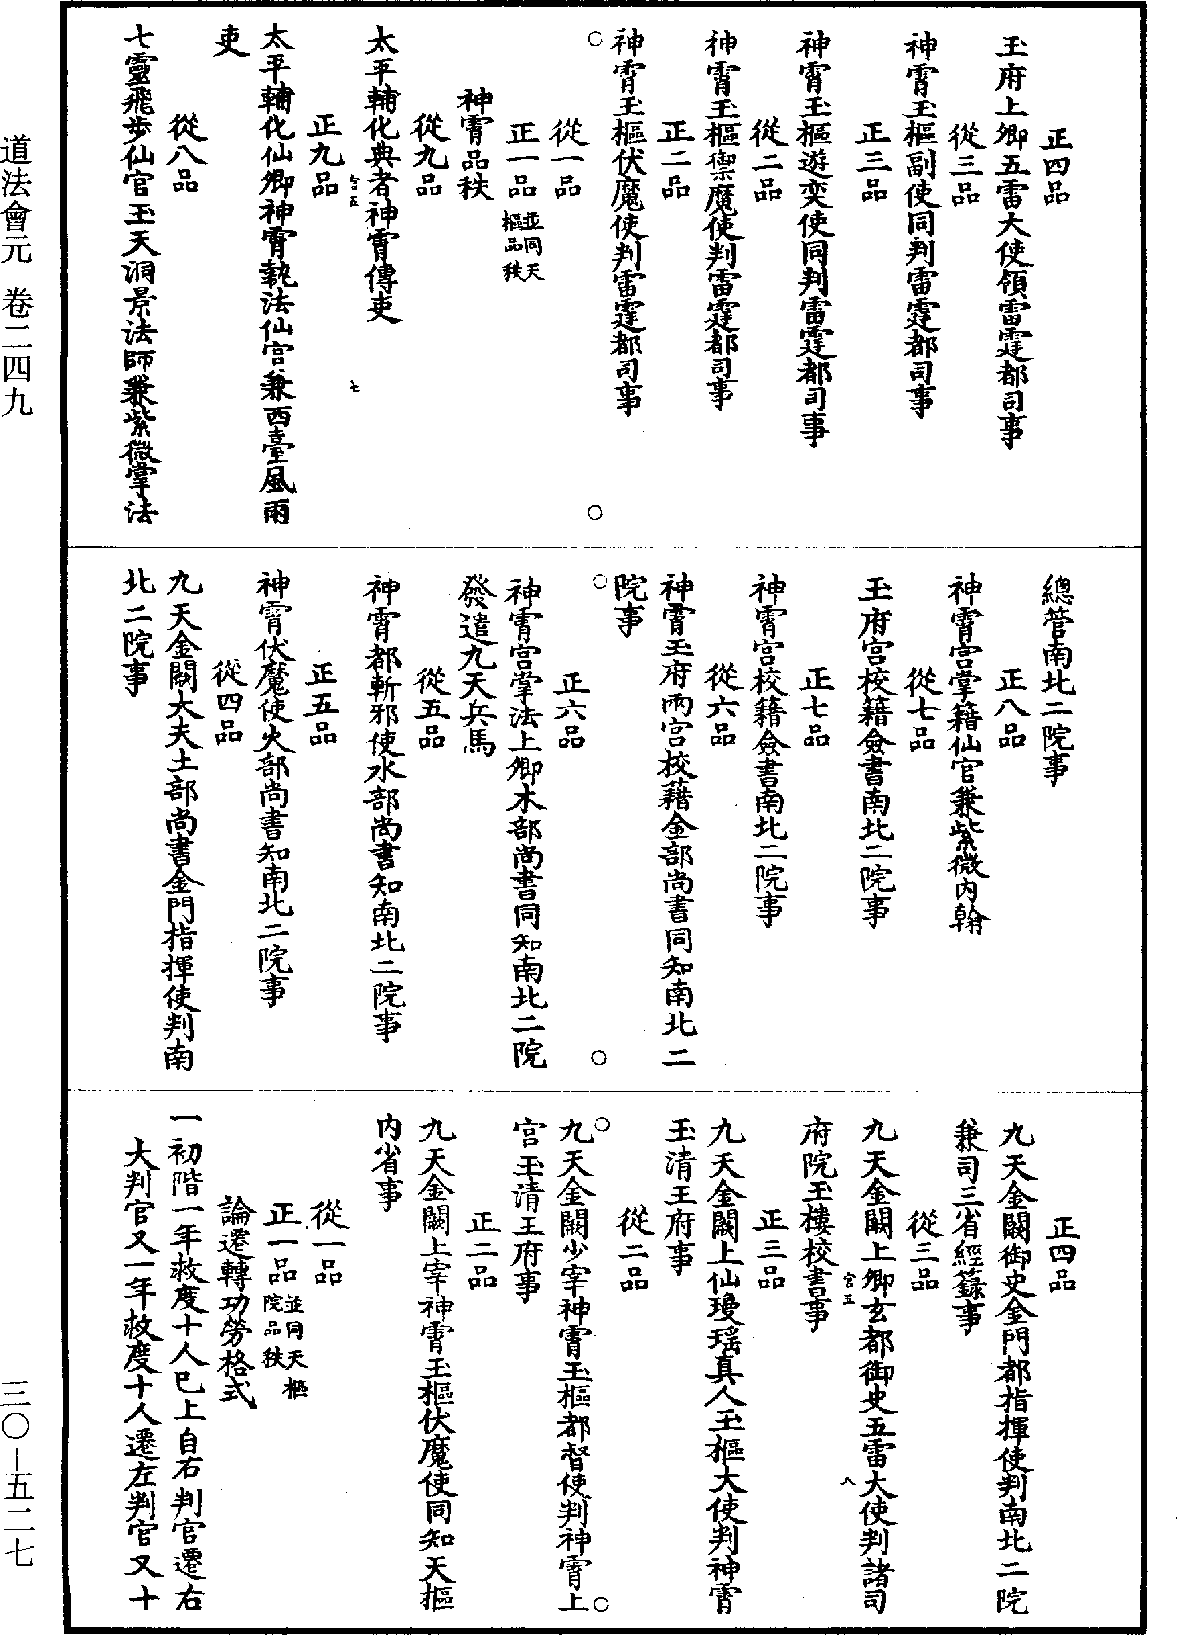 正四品
玉府上卿五雷大使領雷霆都司事
從三品
神霄玉樞副使同判雷霆都司事
正三品
神霄玉樞遊奕使同判雷霆都司事
從二品
神霄玉樞禦魔使判雷霆都司事
正二品
神霄玉樞伏魔使判雷霆都司事
從一品
正一品並同天樞品秩
神霄品秩
從九品
太平輔化典者神霄傳吏
正九品
太平輔化仙卿神霄執法仙官兼西臺風雨
吏
從八品
七靈飛步仙官玉天洞景法師兼紫微掌法
總管南北二院事
正八品
神霄宮掌籍仙官兼紫微內翰
從七品
玉府宮校籍僉書南北二院事
正七品
神霄宮校籍僉書南北二院事
從六品
神霄玉府兩宮校籍金部尚書同知南北二
院事
正六品
神霄宮掌法上卿木部尚書同知南北二院
發遣九天兵馬
從五品
神霄都斬邪使水部尚書知南北二院事
正五品
神霄伏魔使火部尚書知南北二院事
從四品
九天金闕大夫土部尚書金門指揮使判南
北二院事
正四品
九天金闕御史金門都指揮使判南北二院
兼司三省經籙事
從三品
九天金闕上卿玄都御史五雷大使判諸司
府院玉樓校書事
正三品
九天金闕上仙瓊瑶真人玉樞大使判神霄
玉清王府事
從二品
九天金闕少宰神霄玉樞都督使判神霄上
宮玉清王府事
正二品
九天金闕上宰神霄玉樞伏魔使同知天樞
內省事
從一品
正一品並同天樞院品秩
論遷轉功勞格式
一初階一年救度十人已上自右判官遷右
大判官又一年救度十人遷左判官又十
道法會元 卷二四九
三〇—五二七